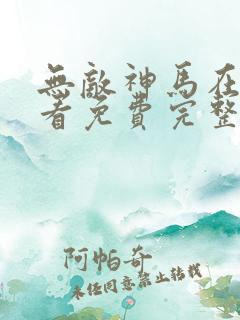 無敵神馬在
看免費完整
阿帕奇
未经同意禁止转载